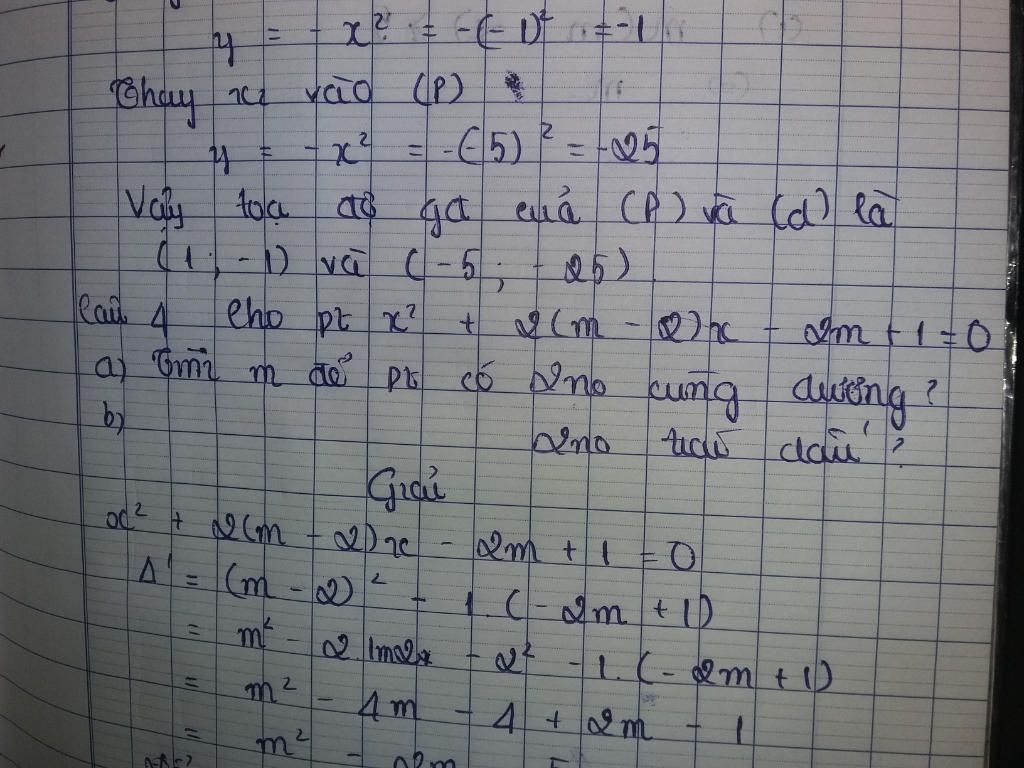 y = - x² = -(-1)² = -1
Thay x₂ vào (P)
y = - x² = -(-5)² = -25
Vậy tọa độ gđ của (P) và (d) là
(1; -1) và (-5; -25)
Câu 4 Cho pt x² + 2(m - 2)x - 2m + 1 = 0
a) Tìm m để pt có 2no cùng dương?
b)
2no trái dấu?
Giải
x² + 2(m - 2)x - 2m + 1 = 0
Δ' = (m - 2)² - 1.(-2m + 1)
= m² - 2 - 2² - 1.(-2m + 1)
= m² - 4m - 4 + 2m - 1
= m² - 2m 5